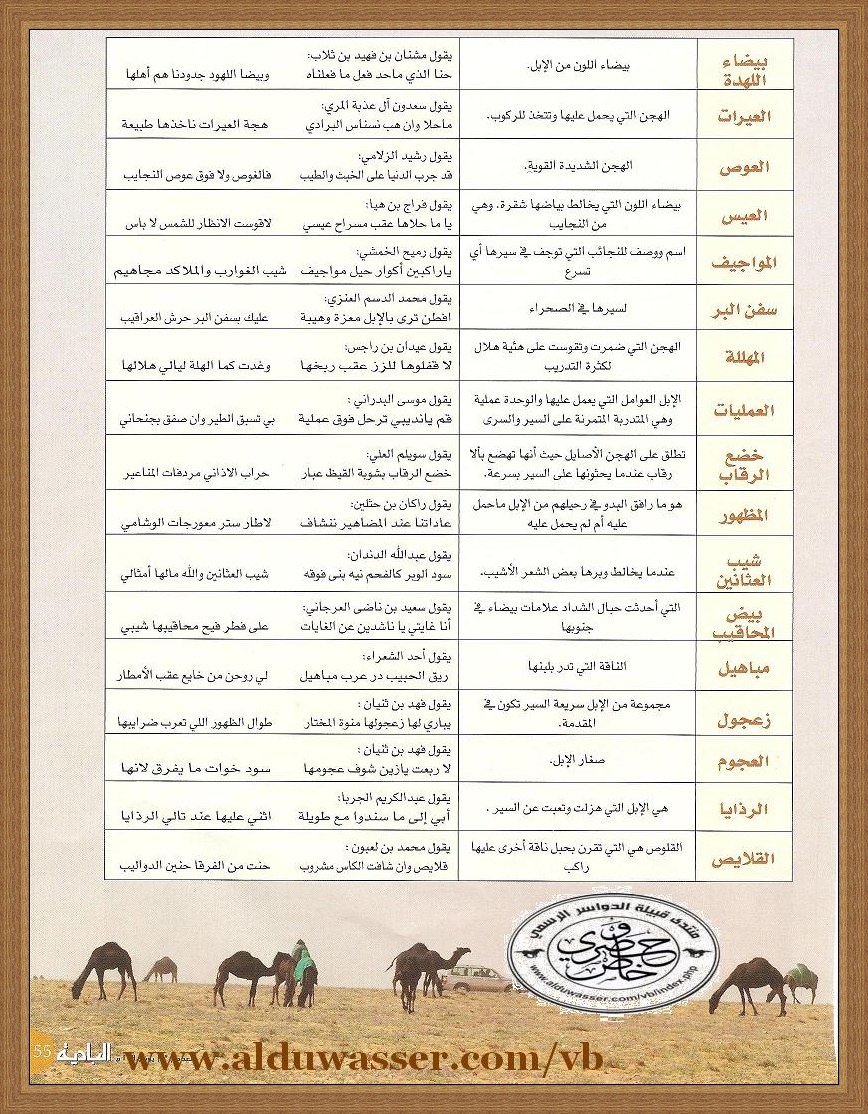 بيضاء
اللهدة
بيضاء اللون من الإبل.
يقول مشنان بن فهيد بن ثلاب:
حنا الذي ماحد فعل ما فعلناه وبيضا اللهود جدودنا هم أهلها
العيرات
الهجن التي يحمل عليها وتتخذ للركوب.
يقول سعدون آل عذبة المري:
ماحلا وان هب نسناس البرادي هجة العيرات ناخذها طبيعة
العوص
الهجن الشديدة القوية.
يقول رشيد الزلامي:
قد جرب الدنيا على الخبث والطيب فالغوص ولا فوق عوص النجايب
العيس
بيضاء اللون التي يخالط بياضها شقرة. وهي
من النجايب
يقول فراج بن هيا:
يا ما حلاها عقب مسراح عيسي لاقوست الانظار للشمس لا باس
المواجيف
اسم ووصف للنجائب التي توجف في سيرها أي
تسرع
يقول رميح الخمشي:
ياراكبين أكوار حيل مواجيف شيب الغوارب والملاكد مجاهيم
سفن البر
لسيرها في الصحراء
يقول محمد الدسم العنزي:
افطن ترى بالإبل معزة وهيبة عليك بسفن البر حرش العراقيب
المهللة
الهجن التي ضمرت وتقوست على هئية هلال
لكثرة التدريب
يقول عيدان بن راجس:
لا قفلوها للزز عقب ربخها وغدت كما الهلة ليالي هلالها
العمليات
الإبل العوامل التي يعمل عليها والوحدة عملية
وهي المتدربة المتمرنة على السير والسرى
يقول موسى البدراني :
قم يانديبي ترحل فوق عملية بي تسبق الطير وان صفق بجنحاني
خضع
الرقاب
تطلق على الهجن الأصايل حيث أنها تهضع بألا
رقاب عندما يحثونها على السير بسرعة.
يقول سويلم العلي:
خضع الرقاب بشوبة القيظ عبار حراب الاذاني مردفات المناعير
المظهور
هو ما رافق البدو في رحيلهم من الإبل ماحمل
عليه أم لم يحمل عليه
يقول راكان بن حثلين:
عاداتنا عند المضاهير ننشاف لاطار ستر معورجات الوشامي
شيب
العثانين
عندما يخالط وبرها بعض الشعر الأشيب.
يقول عبدالله الدندان:
سود الوبر كالفحم نيه بنى فوقه شيب العثانين والله مالها أمثالي
بيض
المحاقيب
التي أحدثت حبال الشداد علامات بيضاء في
جنوبها
يقول سعيد بن ناضى العرجاني:
أنا غايتي يا ناشدين عن الغايات على فطر فيح محاقيبها شيبي
مباهيل
الناقة التي تدر بلبنها
يقول أحد الشعراء:
ريق الحبيب در عرب مباهيل لي روحن من خايع عقب الأمطار
زعجول
مجموعة من الإبل سريعة السير تكون في
المقدمة.
يقول فهد بن ثنيان :
يباري لها زعجولها منوة المختار طوال الظهور اللي تعرب ضرايبها
العجوم
صغار الإبل.
يقول فهد بن ثنيان :
لا ربعت يازين شوف عجومها سود خوات ما يفرق لانها
الرذايا
هي الإبل التي هزلت وتعبت عن السير .
يقول عبدالكريم الجربا:
أبي إلى ما سندوا مع طويلة اثني عليها عند تالي الرذايا
القلايص
القلوص هي التي تقرن بحبل ناقة أخرى عليها
راكب
يقول محمد بن لعبون :
قلايص وان شافت الكاس مشروب حنت من الفرقا حنين الدواليب
منتدى قبيلة الدواسر الرسمي
www.alduwasser.com/vb/index.php
55 البادية
www.alduwasser.com/vb